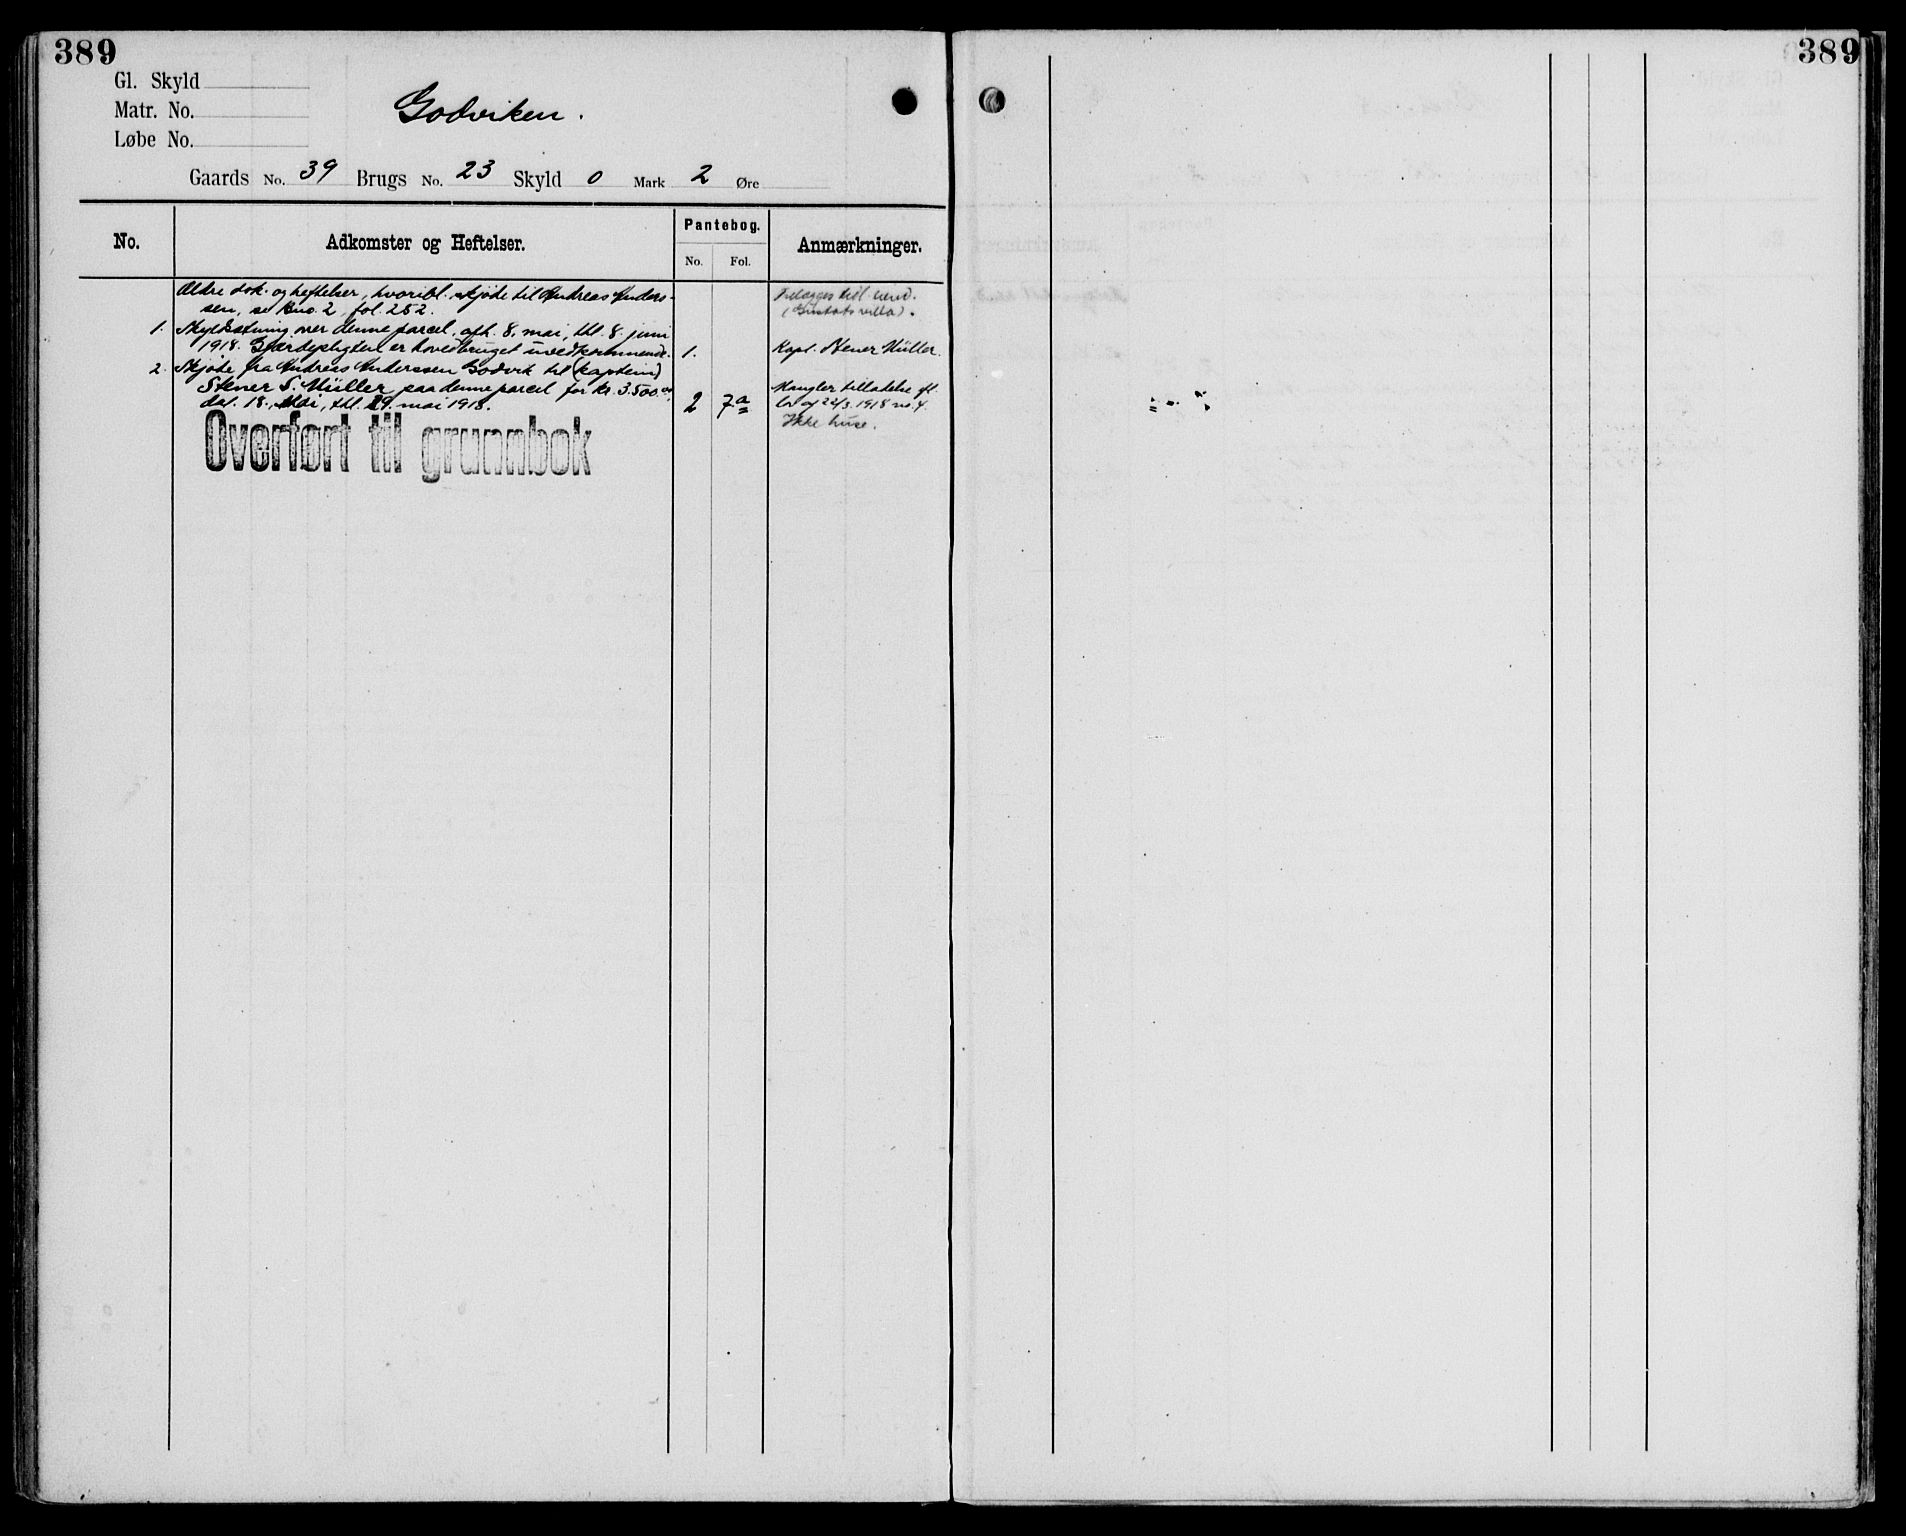 389
389
Gl. Skyld
Matr. No.
Løbe No.
Godviken.
Gaards No. 39 Brugs No. 23 Skyld 0 Mark 2 Øre
No.
Adkomster og Heftelser.
Pantebog.
No. Fol.
Anmærkninger.
Ældre dok. og heftelser, hvoribl. skjøde til Andreas Anders-
sen, se Bno. 2, fol. 252.
1. Skyldsætning over denne parcel, afh. 8. mai, thl. 8. juni
1918. Gjærdepligten er hovedbruget uvedkommende. 1.
2. Skjøde fra Andreas Anderssen Godvik til (kaptein)
Stener S. Müller paa denne parcel for kr. 3.500.00,
dat. 18. mai, thl. 29. mai 1918. 2 7a
til eiend.
Kapt. Stener Müller.
Mangler tilladelse eft.
lov af 22/3. 1918 no. 4.
Ikke huse.
Overført til grunnbok